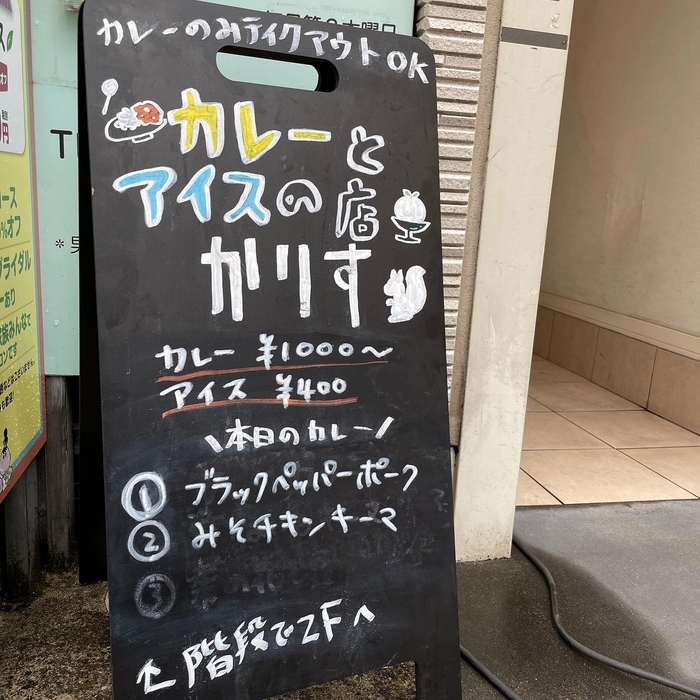 カレーのみテイクアウトOK
カレーと
アイスの店
かりす
カレー ¥1000〜
アイス ¥400
\本日のカレー/
① ブラックペッパーポーク
② みそチキンキーマ
③
↑階段で2Fへ
オフ
ブライダル
あり